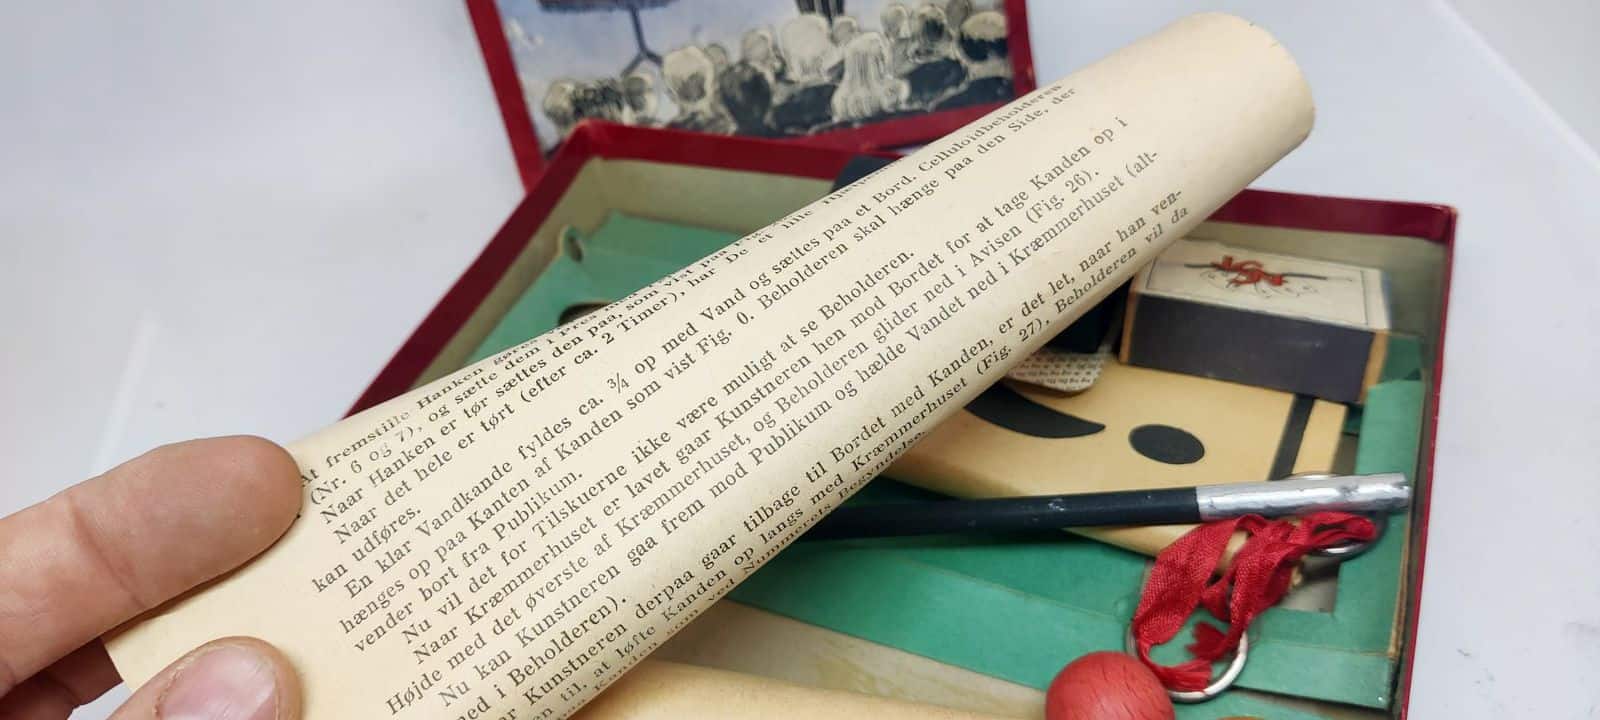 At fremstille Hanken gøres
(Nr. 6 og 7), og sætte dem i Pres
Naar Hanken er tør sættes den paa, som vist paa
Naar det hele er tørt (efter ca. 2 Timer), har De et lille
kan udføres.
En klar Vandkande fyldes ca. ¾ op med Vand og sættes paa et Bord. Celluloidbeholderen
hænges op paa Kanten af Kanden som vist Fig. 0. Beholderen skal hænge paa den Side, der
vender bort fra Publikum.
Nu vil det for Tilskuerne ikke være muligt at se Beholderen.
Naar Kræmmerhuset er lavet gaar Kunstneren hen mod Bordet for at tage Kanden op i
Højde med det øverste af Kræmmerhuset, og Beholderen glider ned i Avisen (Fig. 26).
Nu kan Kunstneren gaa frem mod Publikum og hælde Vandet ned i Kræmmerhuset (alt-
ned i Beholderen).
Kunstneren derpaa gaar tilbage til Bordet med Kanden, er det let, naar han ven-
til, at løfte Kanden op langs med Kræmmerhuset (Fig. 27), Beholderen vil da
Kanden som ved Nummerets Begyndelse